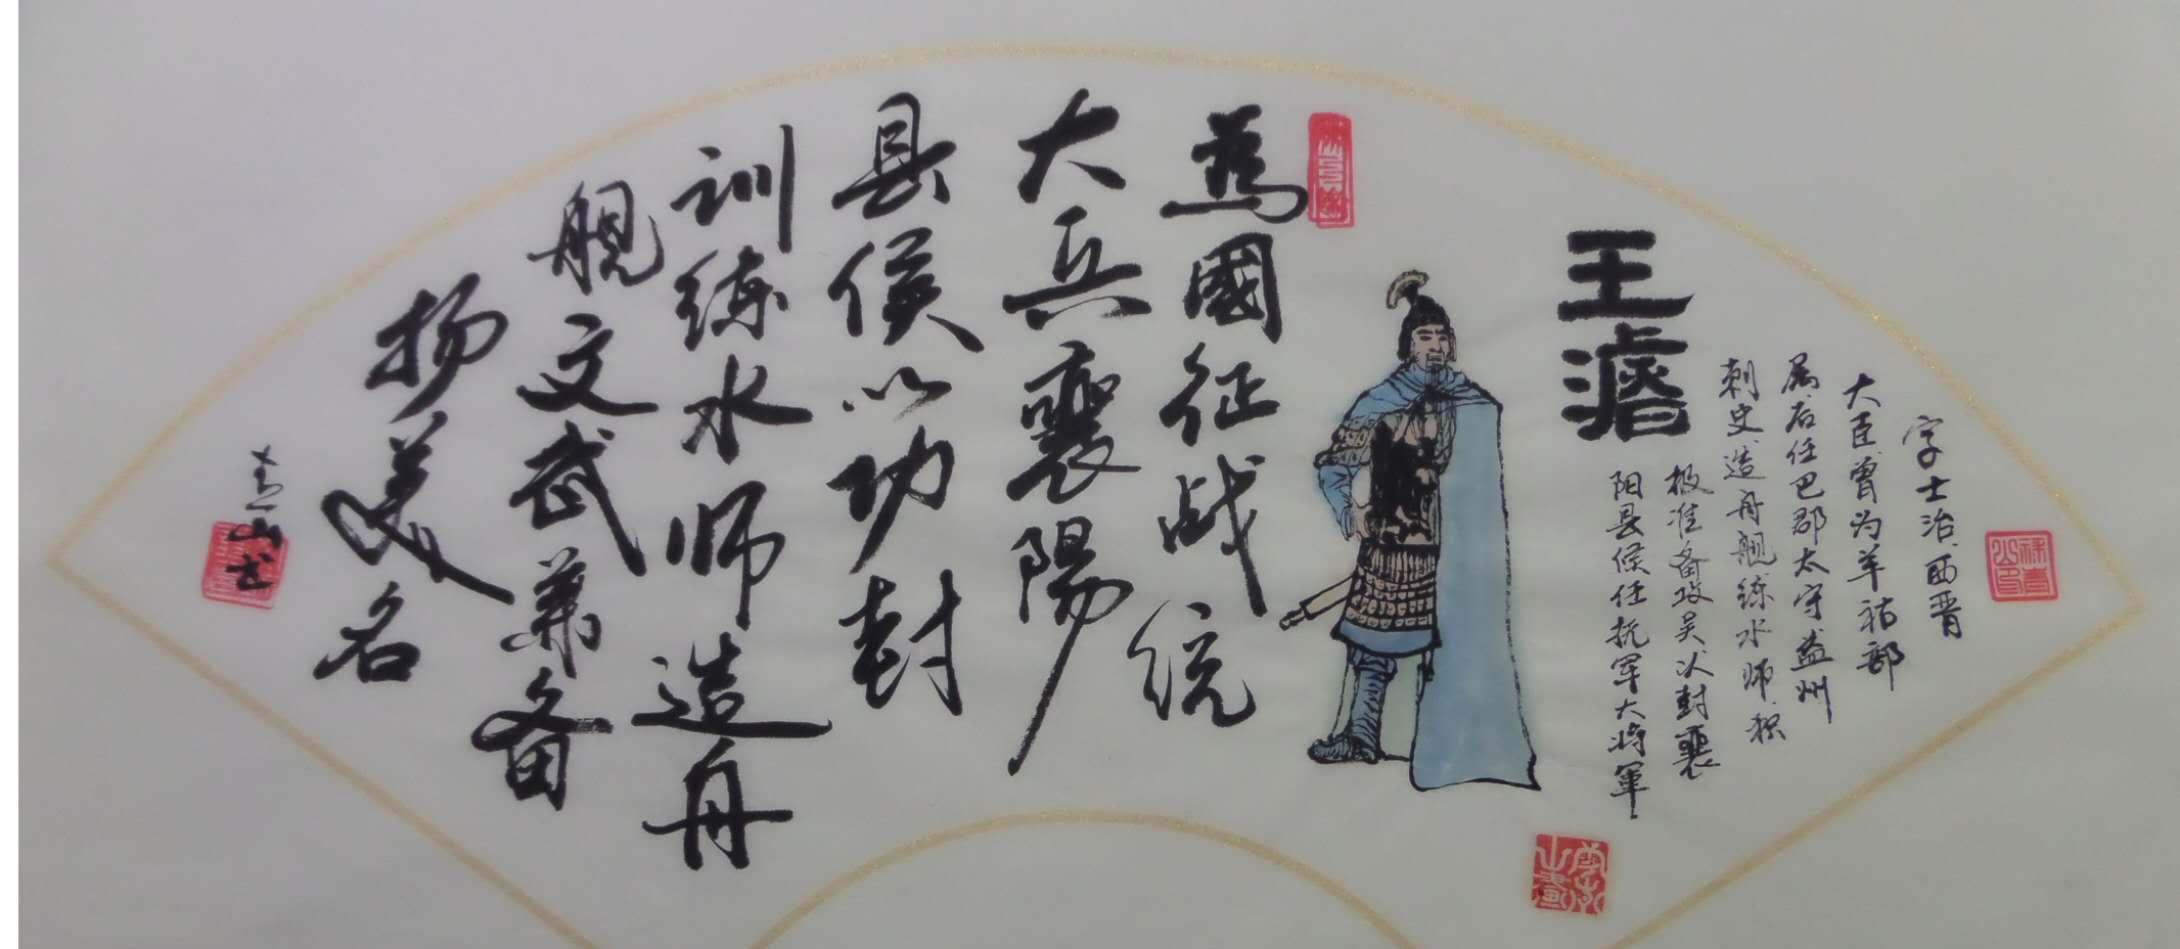 王濬
字士治西晋
大臣曾为羊祜部
属后任巴郡太守益州
刺史造舟舰练水师积
极准备攻吴以封襄
阳县侯任抚军大将军
為國征战统
大兵襄陽
县侯以功封
训练水师造舟
舰文武兼备
扬美名
青山书